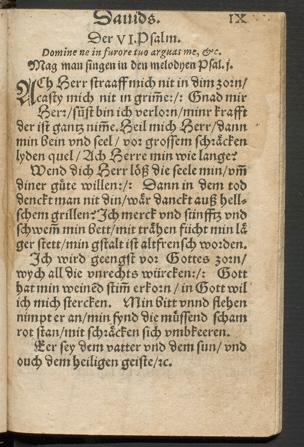 Dauids. IX
Der VI. Psalm.
Domine ne in furore tuo arguas me, &c.
Mag man singen in den melodyen Psal. j.
ACh Herr straaff mich nit in dim zorn/
Leasty mich nit in grim̃e:/: Gnad mir
Herr/süst bin ich verlorn/minr krafft
der ist gantz nim̃e. Heil mich Herr/dann
min bein vnd seel/ vor grossem schräcken
lyden quel/ Ach Herre min wie lange?
Wend dich Herr löß die seele min/vm̃
diner güte willen:/: Dann in dem tod
denckt man nit din/wär danckt auß hell-
schem grillen? Ich merck vnd sünfftz vnd
schwem̃ min bett/mit trähen füicht min lä
ger stett/min gstalt ist altfrensch worden.
Ich wird geengst vor Gottes zorn/
wych all die vnrechts würcken:/: Gott
hat min weinẽd stim̃ erkorn/ in Gott wil
ich mich stercken. Min bitt vnnd flehen
nimpt er an/min fynd die müssend scham
rot stan/mit schräcken sich vmbkeeren.
Eer sey dem vatter vnd dem sun/ vnd
ouch dem heiligen geiste/ꝛc.